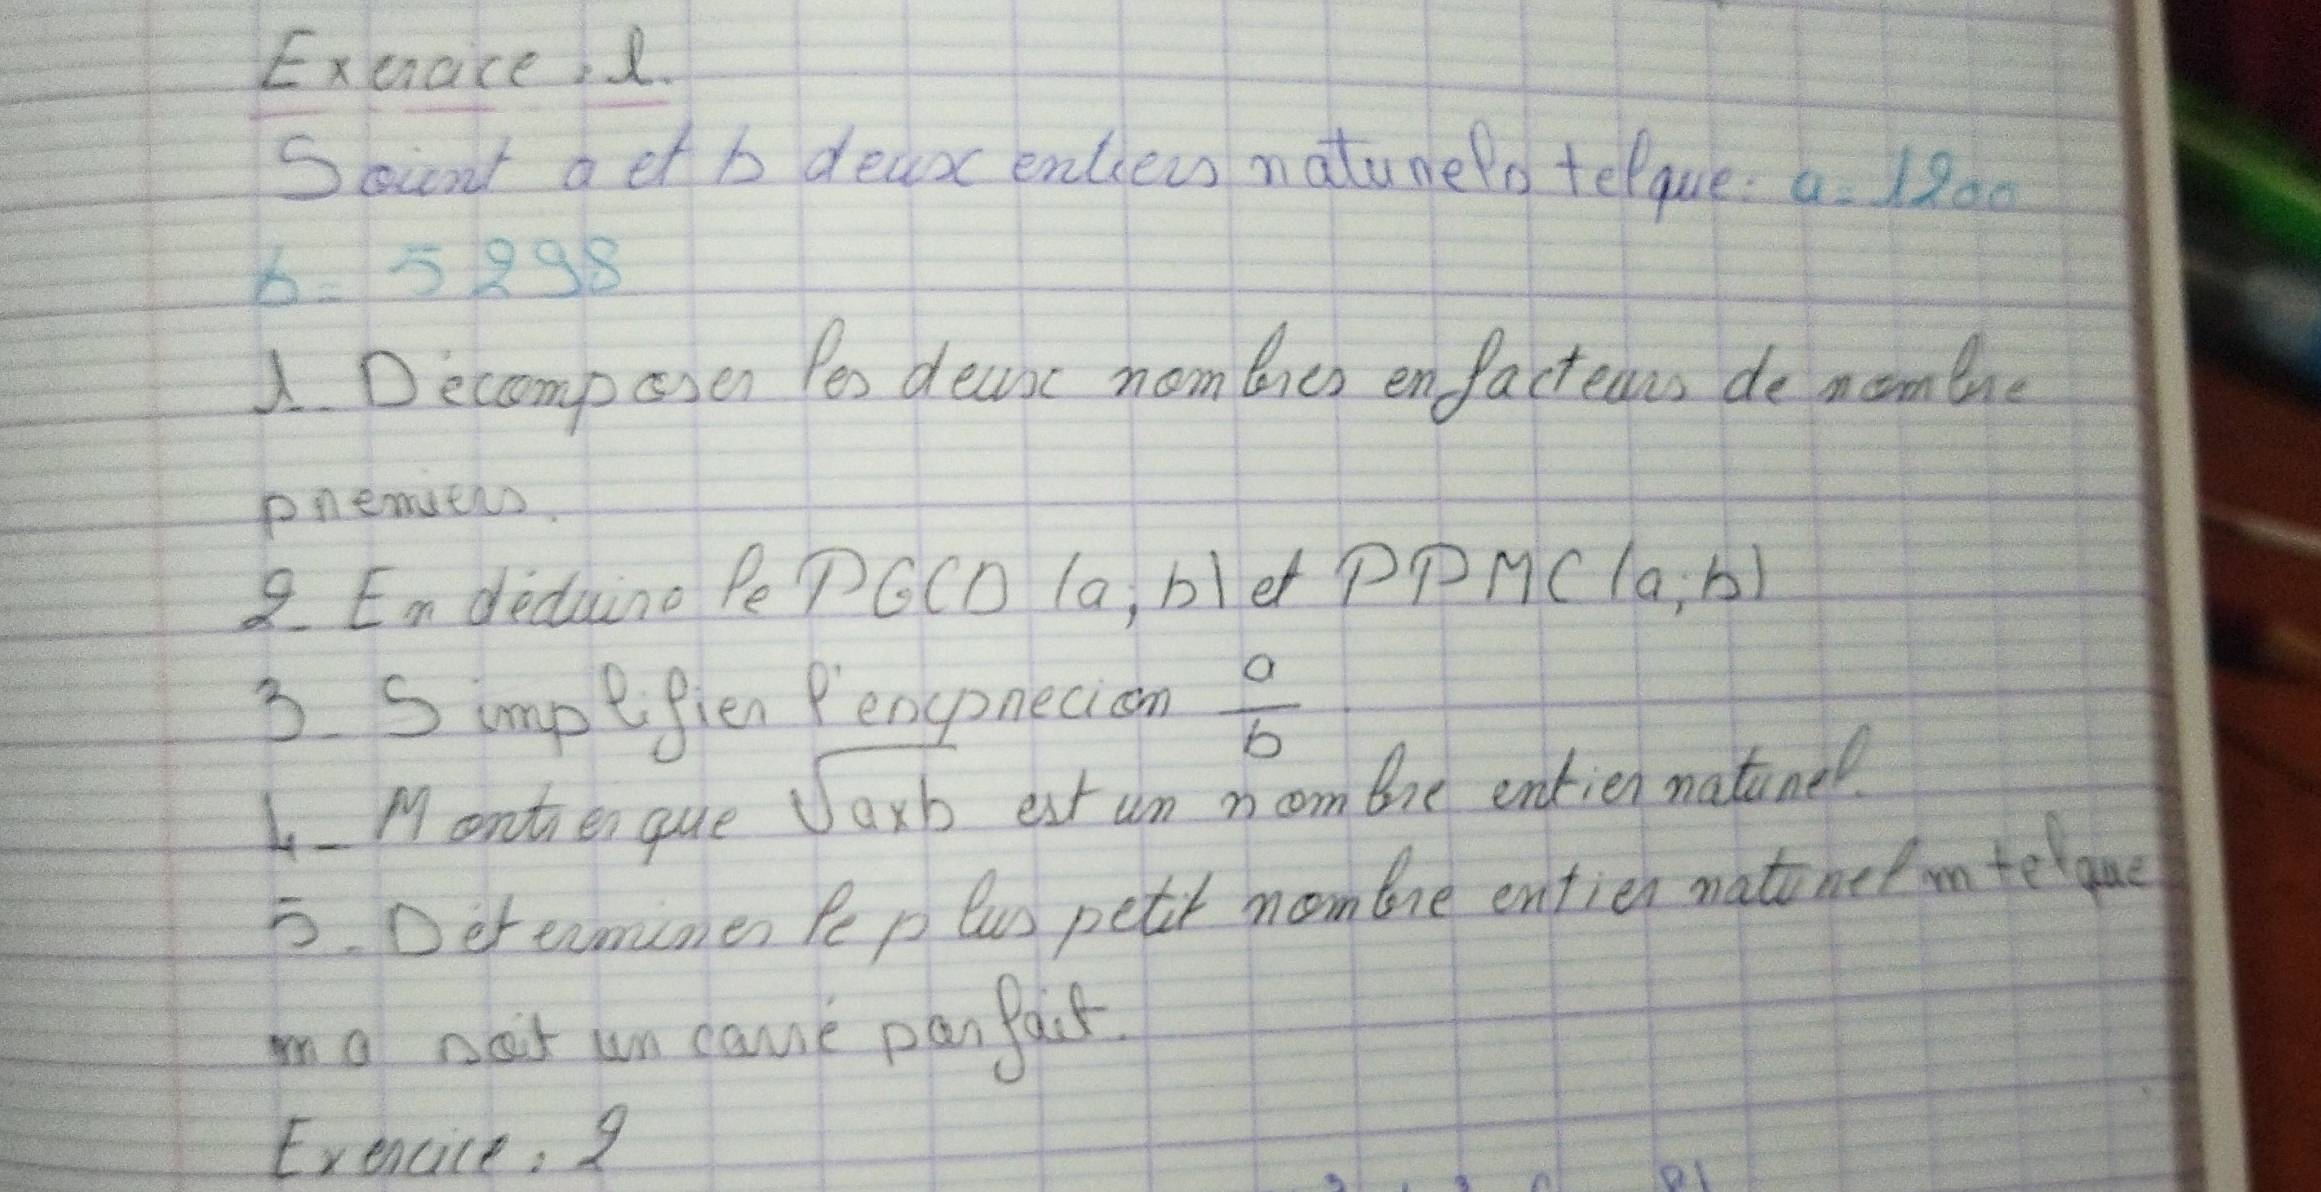 Exercice : 1.
Soient a et b deux entiers naturels tel que : a = 1200
b = 5298
1_ Décomposer les deux nombres en facteurs de nombre
premiers.
2_ En déduire le PGCD (a ; b) et PPMC (a ; b)
3_ Simplifier l'excprecion a/b
4_ Montrer que √axb est un nombre entier naturel.
5_ Déterminer le plus petit nombre entier naturel m tel que
m a soit un carré parfait.
Exercice : 2